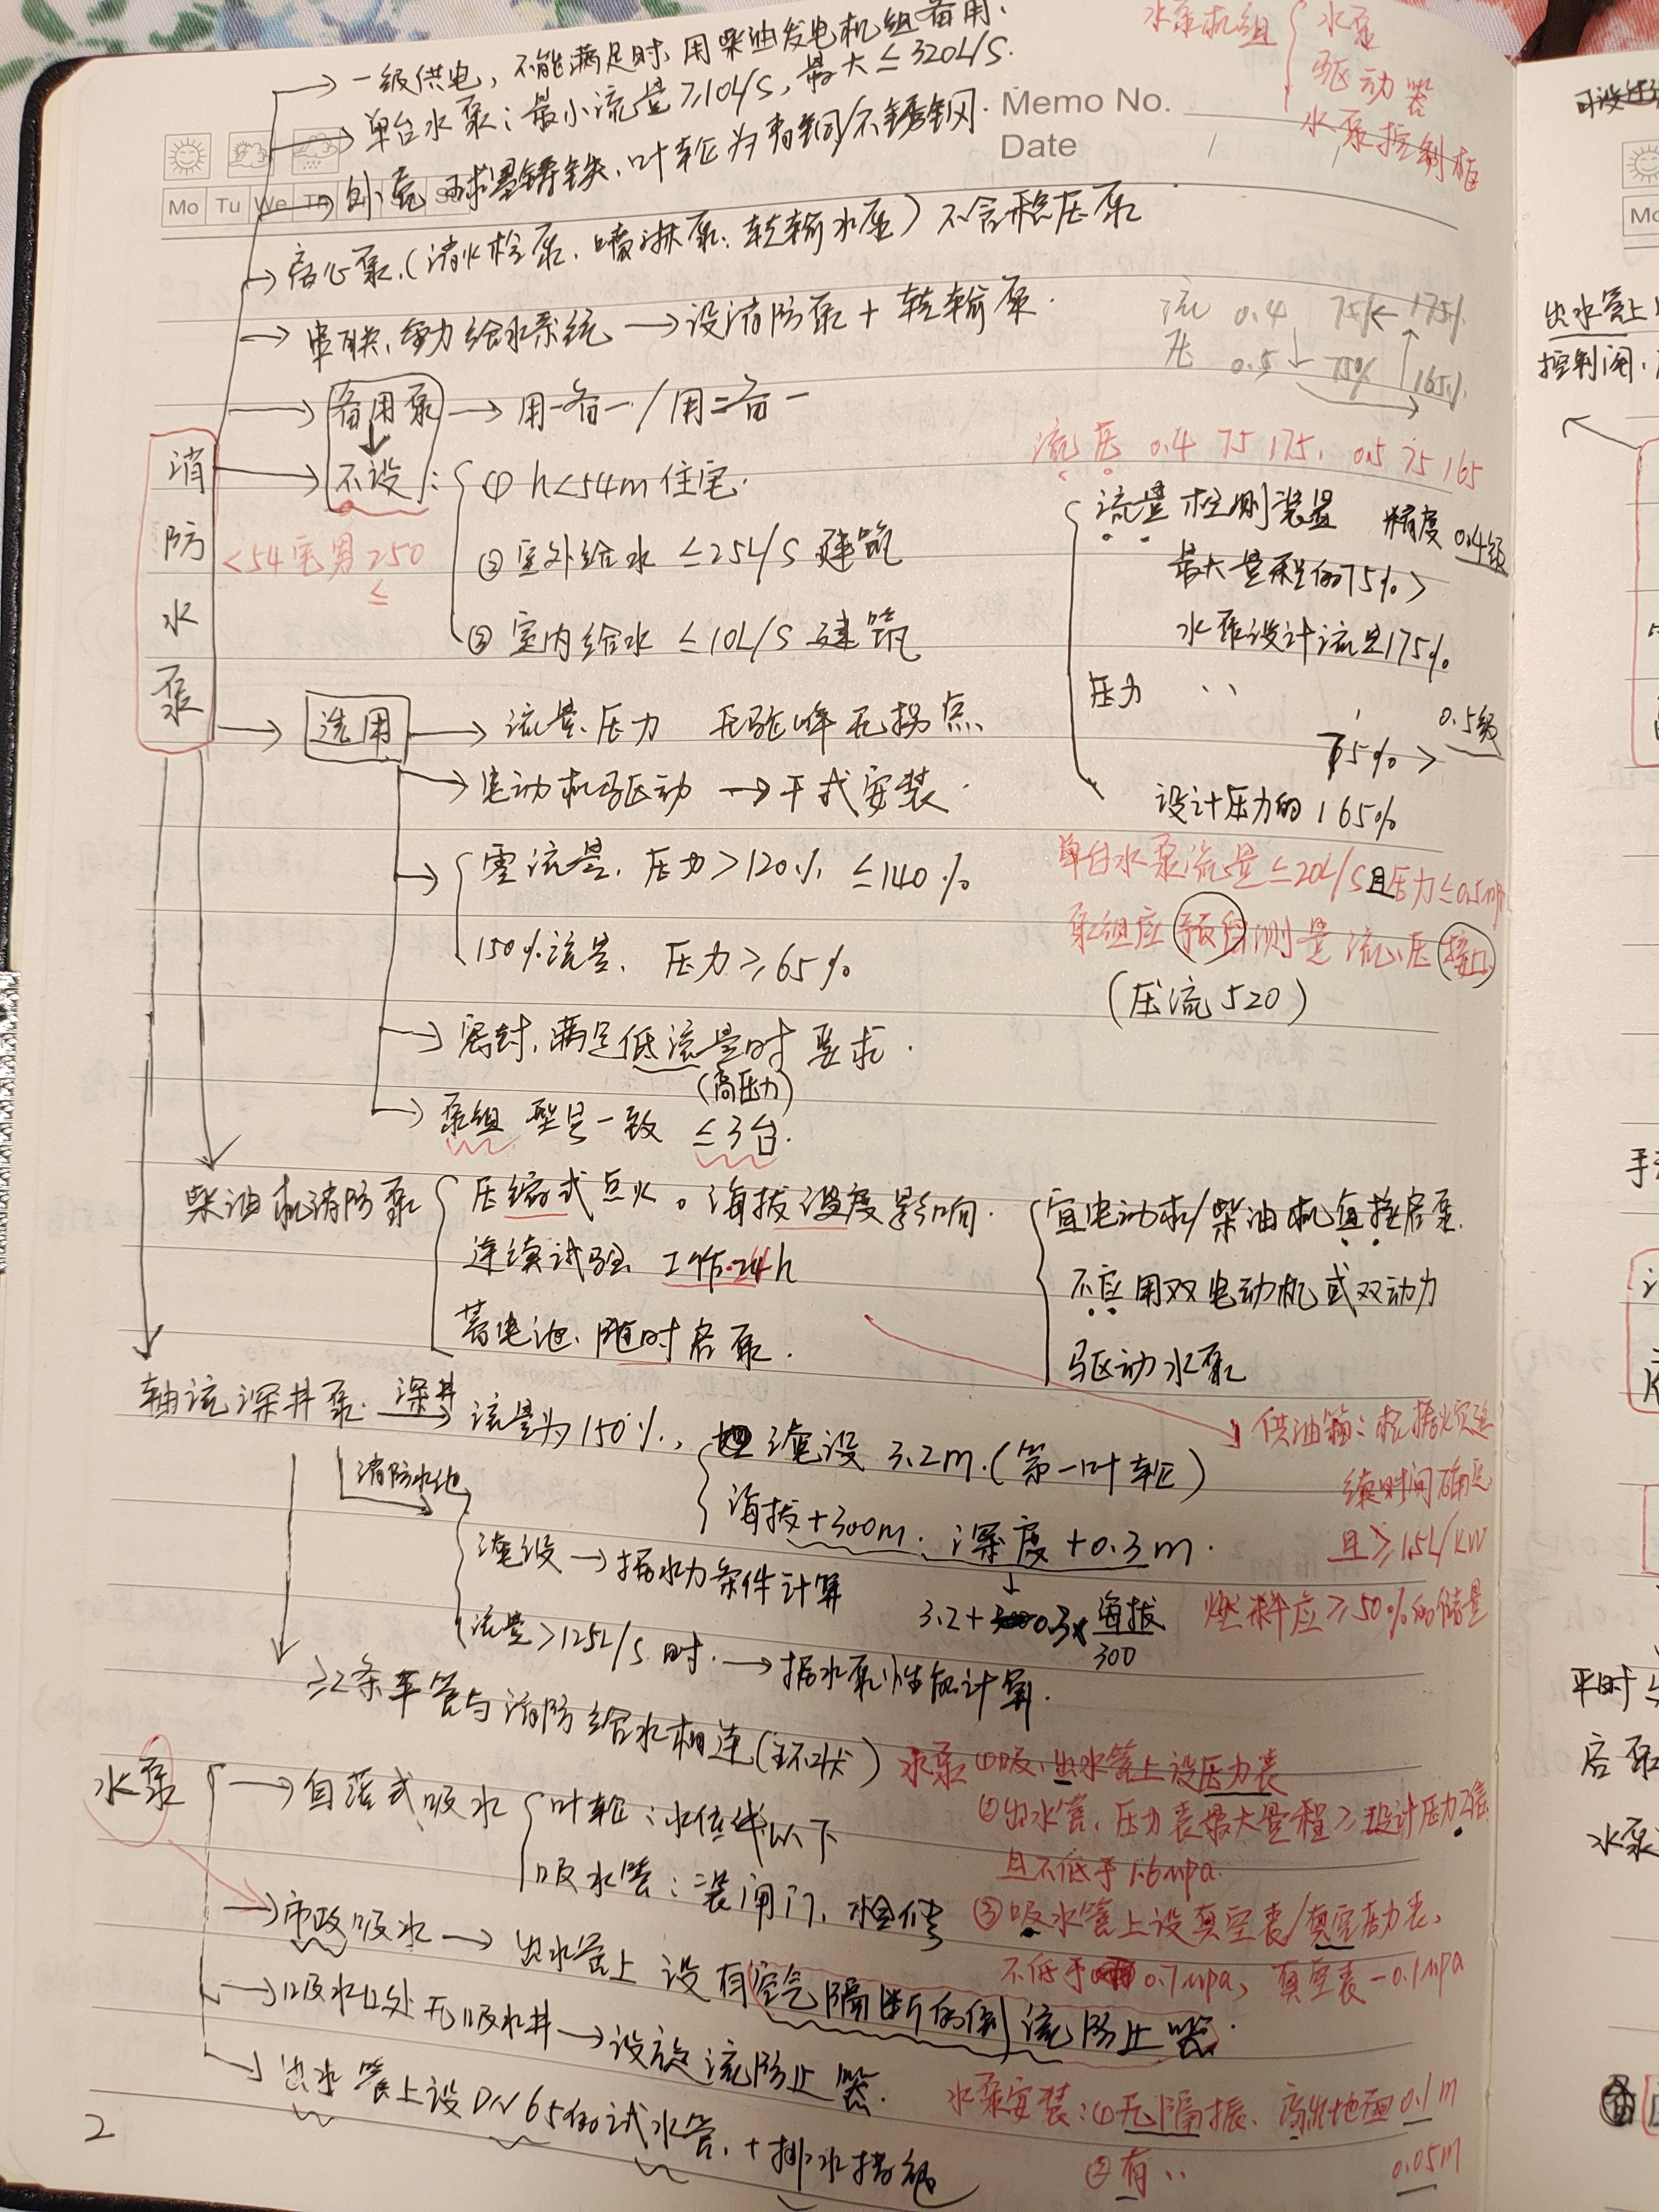 一级供电，不能满足时，用柴油发电机组备用.
单台水泵：最小流量≥10L/S，最大≤320L/S.
外壳 球墨铸铁、叶轮为青铜/不锈钢.
水泵机组 { 水泵
驱动器
水泵控制柜
Memo No.
Date
Mo Tu We Th
离心泵.(消火栓泵、喷淋泵、转输水泵) 不含稳压泵
串联、重力给水系统 → 设消防泵 + 转输泵.
流 0.4 75%← 175%
压 0.5 → 75% 165%
备用泵 → 用一备一 / 用二备一
流 压 0.4 75 175. 0.5 75 165
消防水泵
不设：{ ① h<54m 住宅.
<54宅男 250
≤
② 室外给水 ≤25L/S 建筑
③ 室内给水 ≤10L/S 建筑
流量检测装置 精度 0.4级
最大量程的75%>
水泵设计流量175%
压力 ''
75%> 0.5级
设计压力的165%
选用 → 流量、压力 无驼峰无拐点
电动机驱动 → 干式安装.
零流量、压力>120% ≤140%
150%流量、压力≥65%
单台水泵流量≤20L/S且压力≤0.5mpa
泵组应预留测量流、压接口
(压流520)
密封，满足低流量时要求.
(高压力)
泵组 型号一致 ≤3台.
柴油机消防泵 { 压缩式点火。海拔温度影响.
连续试验 工作24h
蓄电池、随时启泵.
宜电动机/柴油机直接启泵.
不应用双电动机或双动力
驱动水泵
供油箱：根据火灾延
续时间确定
且≥1.5L/KW
燃料应≥50%的储量
轴流深井泵 深井→ 流量为150%，
淹设 3.2m.(第一叶轮)
海拔+300m. 深度+0.3m.
3.2+0.3×海拔/300
消防水池
淹没 → 据水力条件计算
流量>125L/S时. → 据水泵性能计算.
≥2条车管与消防给水相连(环状)
水泵 { → 自灌式吸水 { 叶轮：水位线以下
吸水管：装闸门、检修
→ 市政吸水 → 出水管上 设有空气隔断的倒流防止器.
→ 吸水口处无吸水井 → 设旋流防止器.
→ 出水管上设DN65的试水管，+排水措施
水泵 ①吸、出水管上设压力表
②出水管、压力表最大量程≥设计压力2倍
且不低于1.6mpa.
③吸水管上设真空表/真空压力表、
不低于0.7mpa，真空表-0.1mpa
水泵安装：①无隔振、高出地面0.1m
②有 '' 0.05m
2
出水管上
控制阀、
平时
启泵
水泵